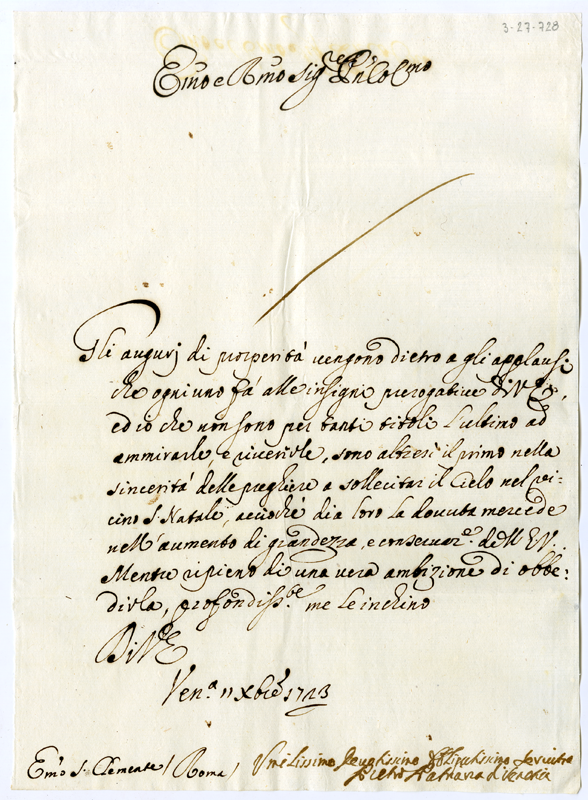 3-27-728
Emo e Rmo Sigre Pne Colmo
Gli augurj di prosperità vengono dietro a gli applausi
che ogni uno fà alle insigni prerogative di V. Em.,
ed io che non sono per tanti titoli l'ultimo ad
ammirarle, e riverirle, sono altresì il primo nella
sincerità delle preghiere a sollecitar il Cielo nel vi-
cino S. Natale, acciochè dia loro la dovuta mercede
nell'aumento di grandezza, e conservazne dell'E.V.
Mentre ripieno di una vera ambizione di obbe-
dirla, profondissme me le inchino
Di V E
Vena 11 Xbre 1723
Emo S. Clemente / Roma /
Umilissimo Devotissimo Obligatissimo Servitore
Pietro Patriarca di Venezia